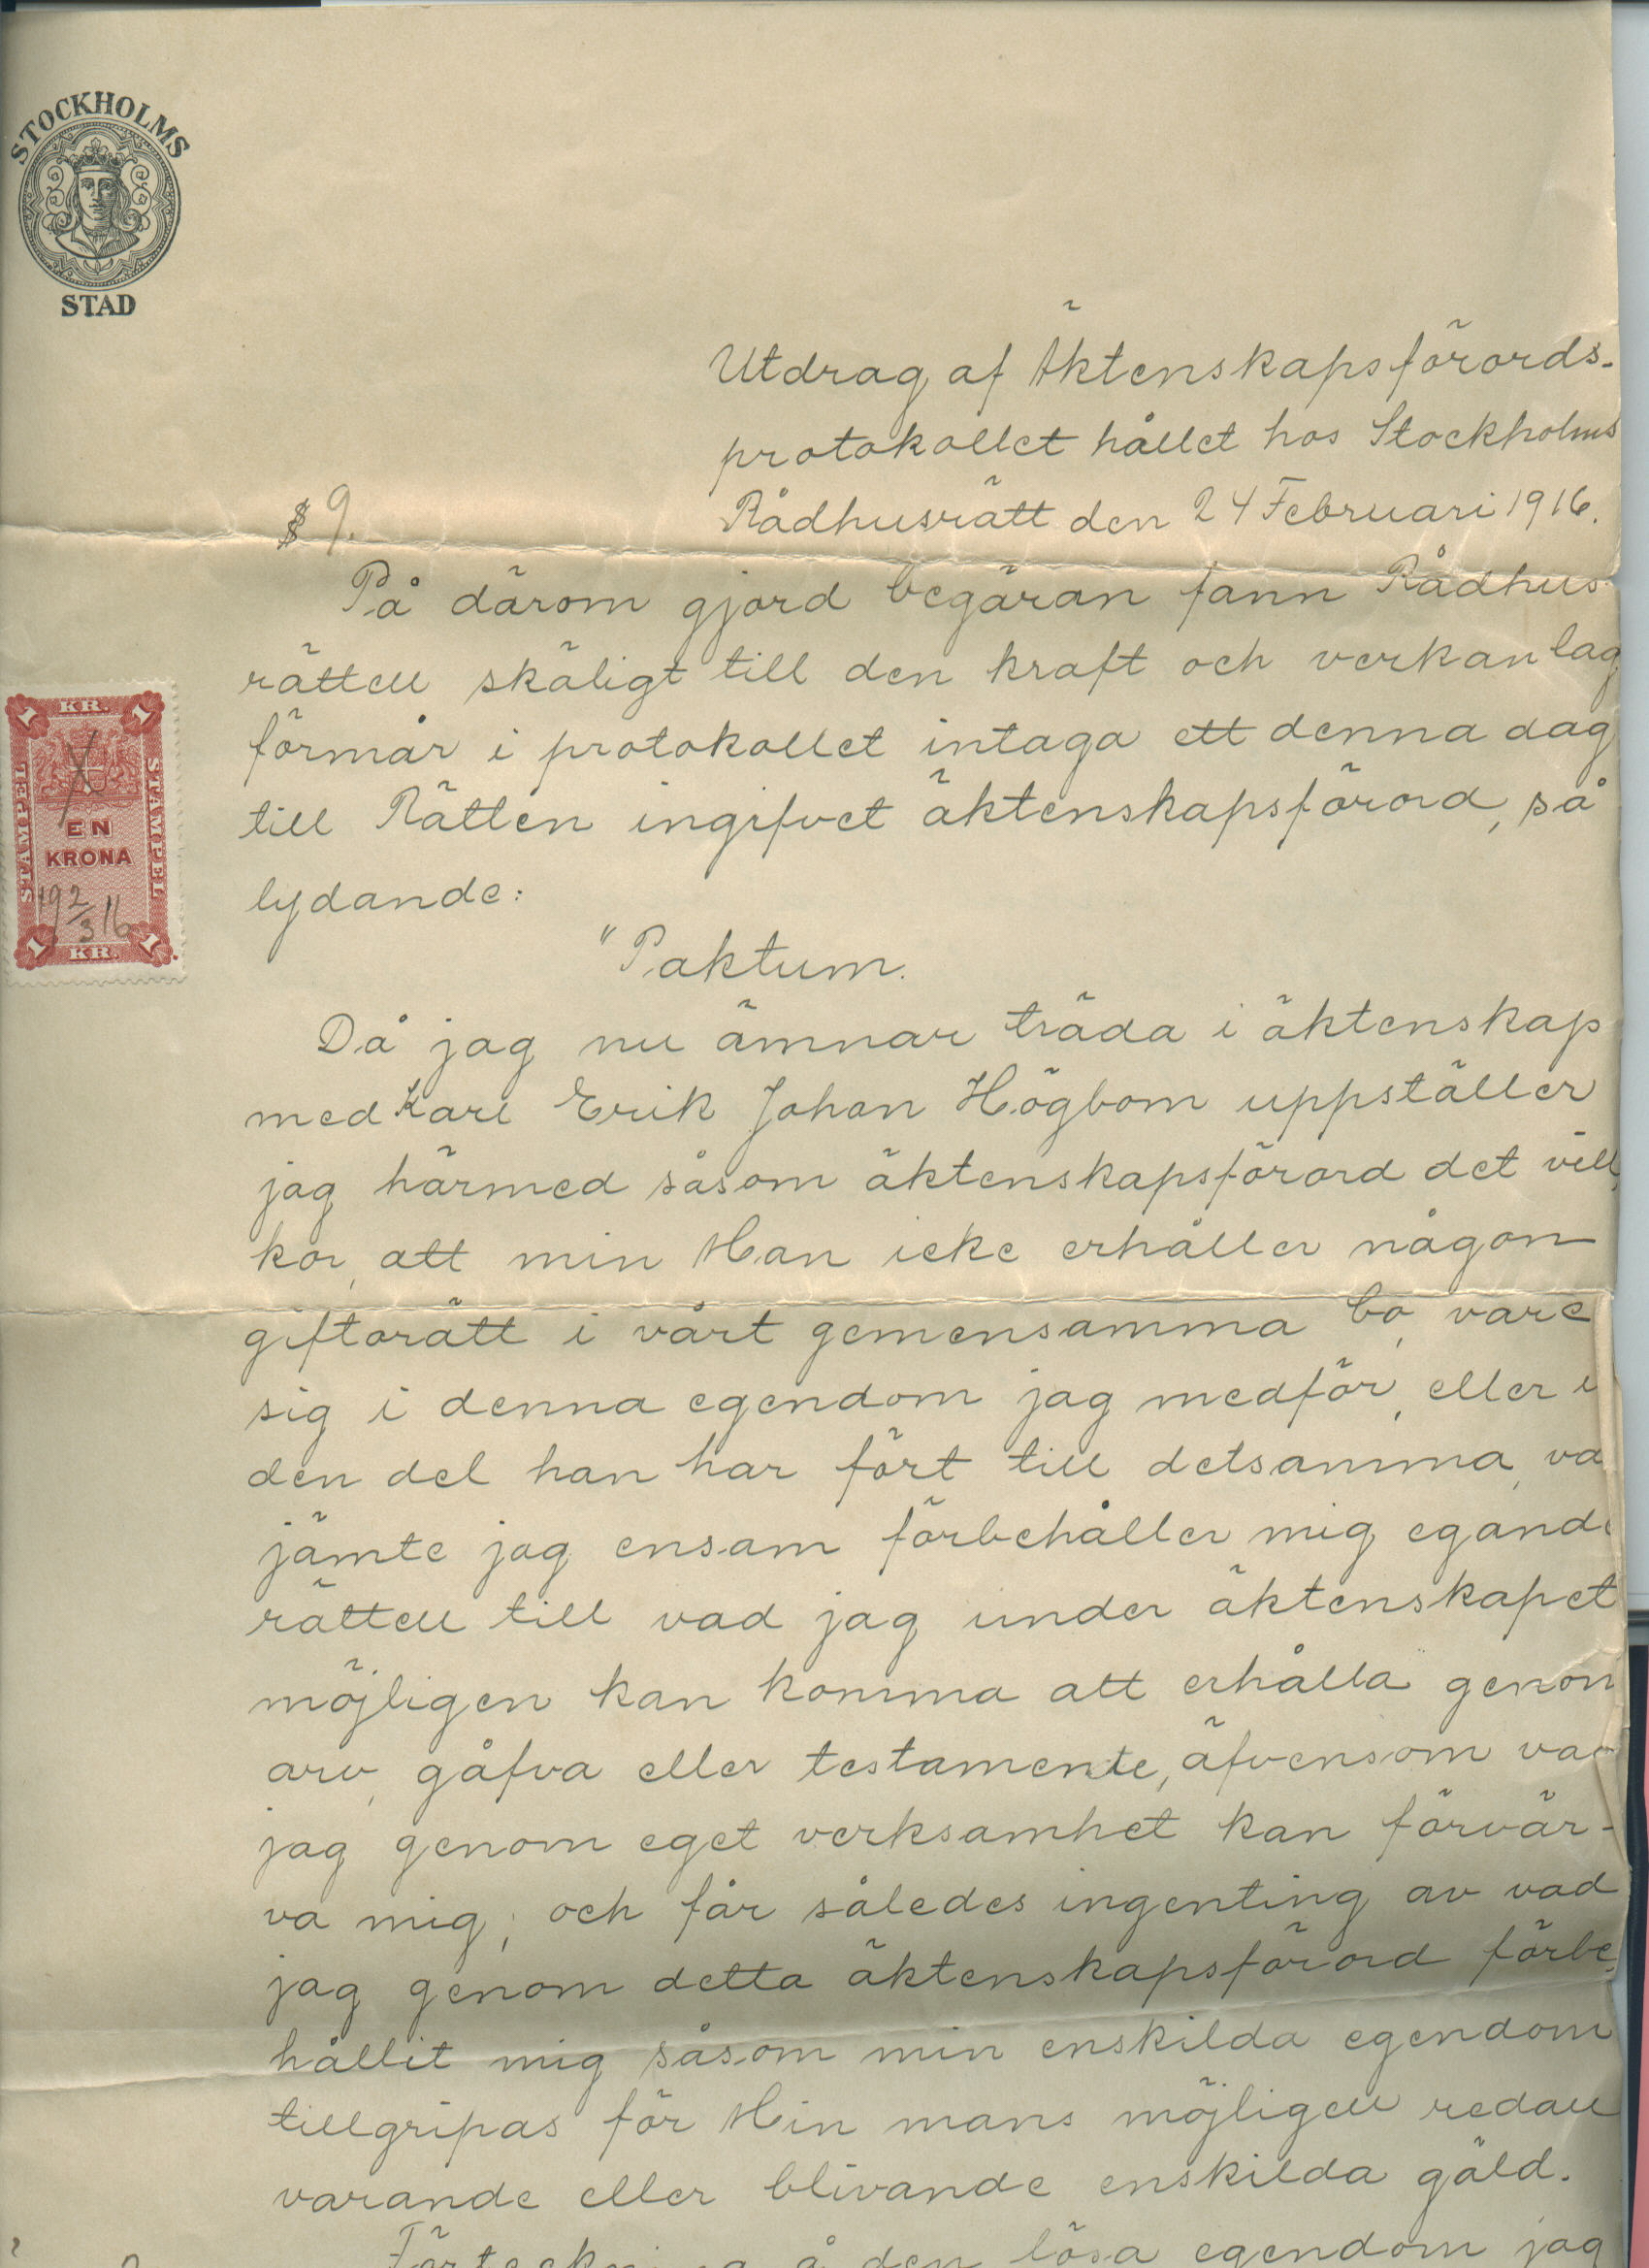 STOCKHOLMS
STAD
Utdrag af Äktenskapsförords-
protokollet hållet hos Stockholms
Rådhusrätt den 24 Februari 1916.
§ 9.
På därom gjord begäran fann Rådhus-
rätten skäligt till den kraft och verkan lag
förmår i protokollet intaga ett denna dag
till Rätten ingifvet äktenskapsförord, så
lydande:
"Paktum.
Då jag nu ämnar träda i äktenskap
med Karl Erik Johan Högbom uppställer
jag härmed såsom äktenskapsförord det vill
kor, att min Man icke erhåller någon
giftorätt i vårt gemensamma bo, vare
sig i denna egendom jag medför, eller i
den del han har fört till detsamma, va
jämte jag ensam förbehåller mig egande
rätten till vad jag under äktenskapet
möjligen kan komma att erhålla genom
arv, gåfva eller testamente, äfvensom vad
jag genom eget verksamhet kan förvär-
va mig; och får således ingenting av vad
jag genom detta äktenskapsförord förbe
hållit mig såsom min enskilda egendom
tillgripas för Min mans möjligen redan
varande eller blivande enskilda gäld.
Förteckning å den lösa egendom jag
1 KR. 1
STAMPEL
STAMPEL
EN
KRONA
19 2/3 16
1 KR. 1